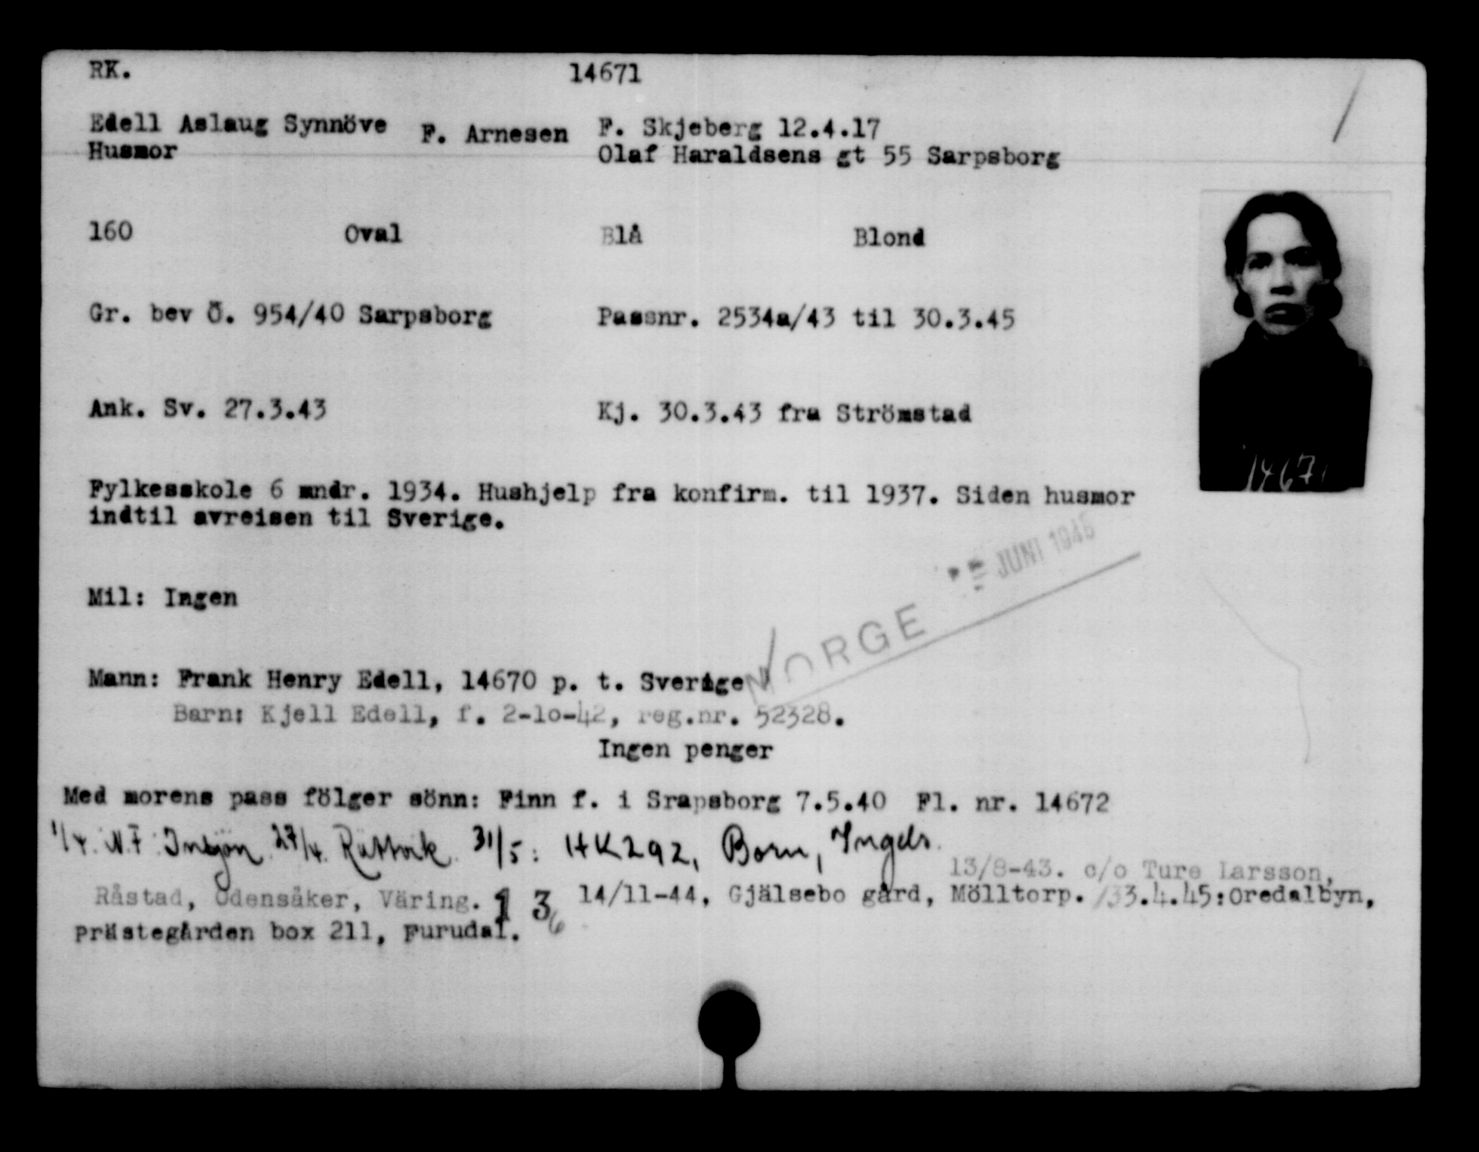 RK. 14671
Edell Aslaug Synnöve F. Arnesen F. Skjeberg 12.4.17
Husmor Olaf Haraldsens gt 55 Sarpsborg
160 Oval Blå Blond
Gr. bev Ö. 954/40 Sarpsborg Passnr. 2534a/43 til 30.3.45
Ank. Sv. 27.3.43 Kj. 30.3.43 fra Strömstad
1467
Fylkesskole 6 mndr. 1934. Hushjelp fra konfirm. til 1937. Siden husmor
indtil avreisen til Sverige.
JUNI 1945
Mil: Ingen
NORGE
Mann: Frank Henry Edell, 14670 p. t. Sverige
Barn: Kjell Edell, f. 2-10-42, reg.nr. 52328.
Ingen penger
Med morens pass fölger sönn: Finn f. i Srapsborg 7.5.40 Fl. nr. 14672
1/4. N.F. 27/4. Rättvik. 31/5: HK292, Born, Ingels.
13/8-43. c/o Ture Larsson,
Råstad, Odensåker, Väring. 1 3 6 14/11-44, Gjälsebo gård, Mölltorp. 3.4.45:Oredalbyn,
prästegården box 211, Furudal.